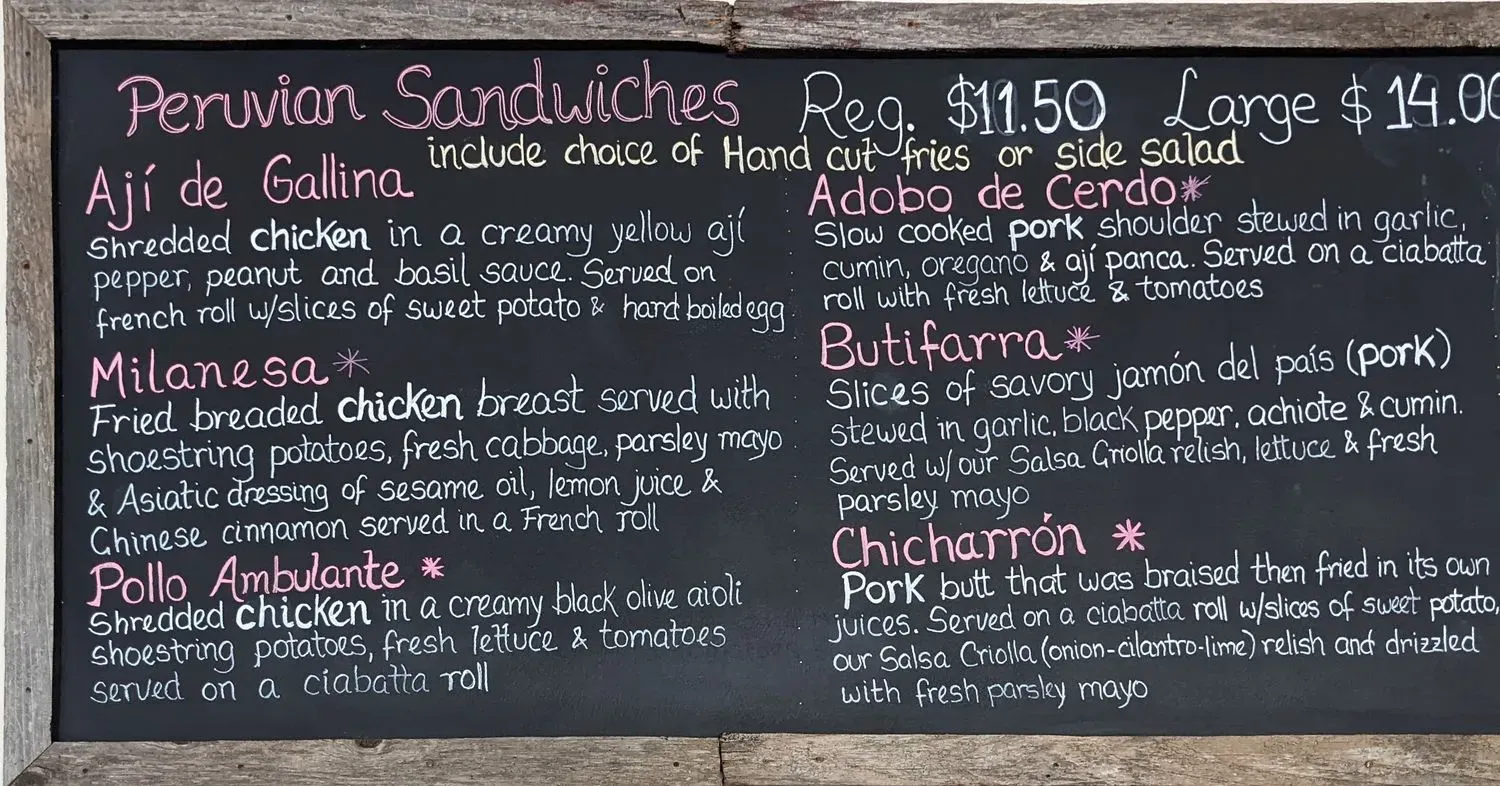 Peruvian Sandwiches Reg. $11.50 Large $14.00
include choice of Hand cut fries or side salad
Ají de Gallina
Shredded chicken in a creamy yellow ají
pepper, peanut and basil sauce. Served on
french roll w/slices of sweet potato & hard boiled egg
Milanesa *
Fried breaded chicken breast served with
shoestring potatoes, fresh cabbage, parsley mayo
& Asiatic dressing of sesame oil, lemon juice &
Chinese cinnamon served in a French roll
Pollo Ambulante *
Shredded chicken in a creamy black olive aioli
shoestring potatoes, fresh lettuce & tomatoes
served on a ciabatta roll
Adobo de Cerdo *
Slow cooked pork shoulder stewed in garlic,
cumin, oregano & ají panca. Served on a ciabatta
roll with fresh lettuce & tomatoes
Butifarra *
Slices of savory jamón del país (pork)
stewed in garlic, black pepper, achiote & cumin.
Served w/ our Salsa Criolla relish, lettuce & fresh
parsley mayo
Chicharrón *
Pork butt that was braised then fried in its own
juices. Served on a ciabatta roll w/slices of sweet potato,
our Salsa Criolla (onion-cilantro-lime) relish and drizzled
with fresh parsley mayo